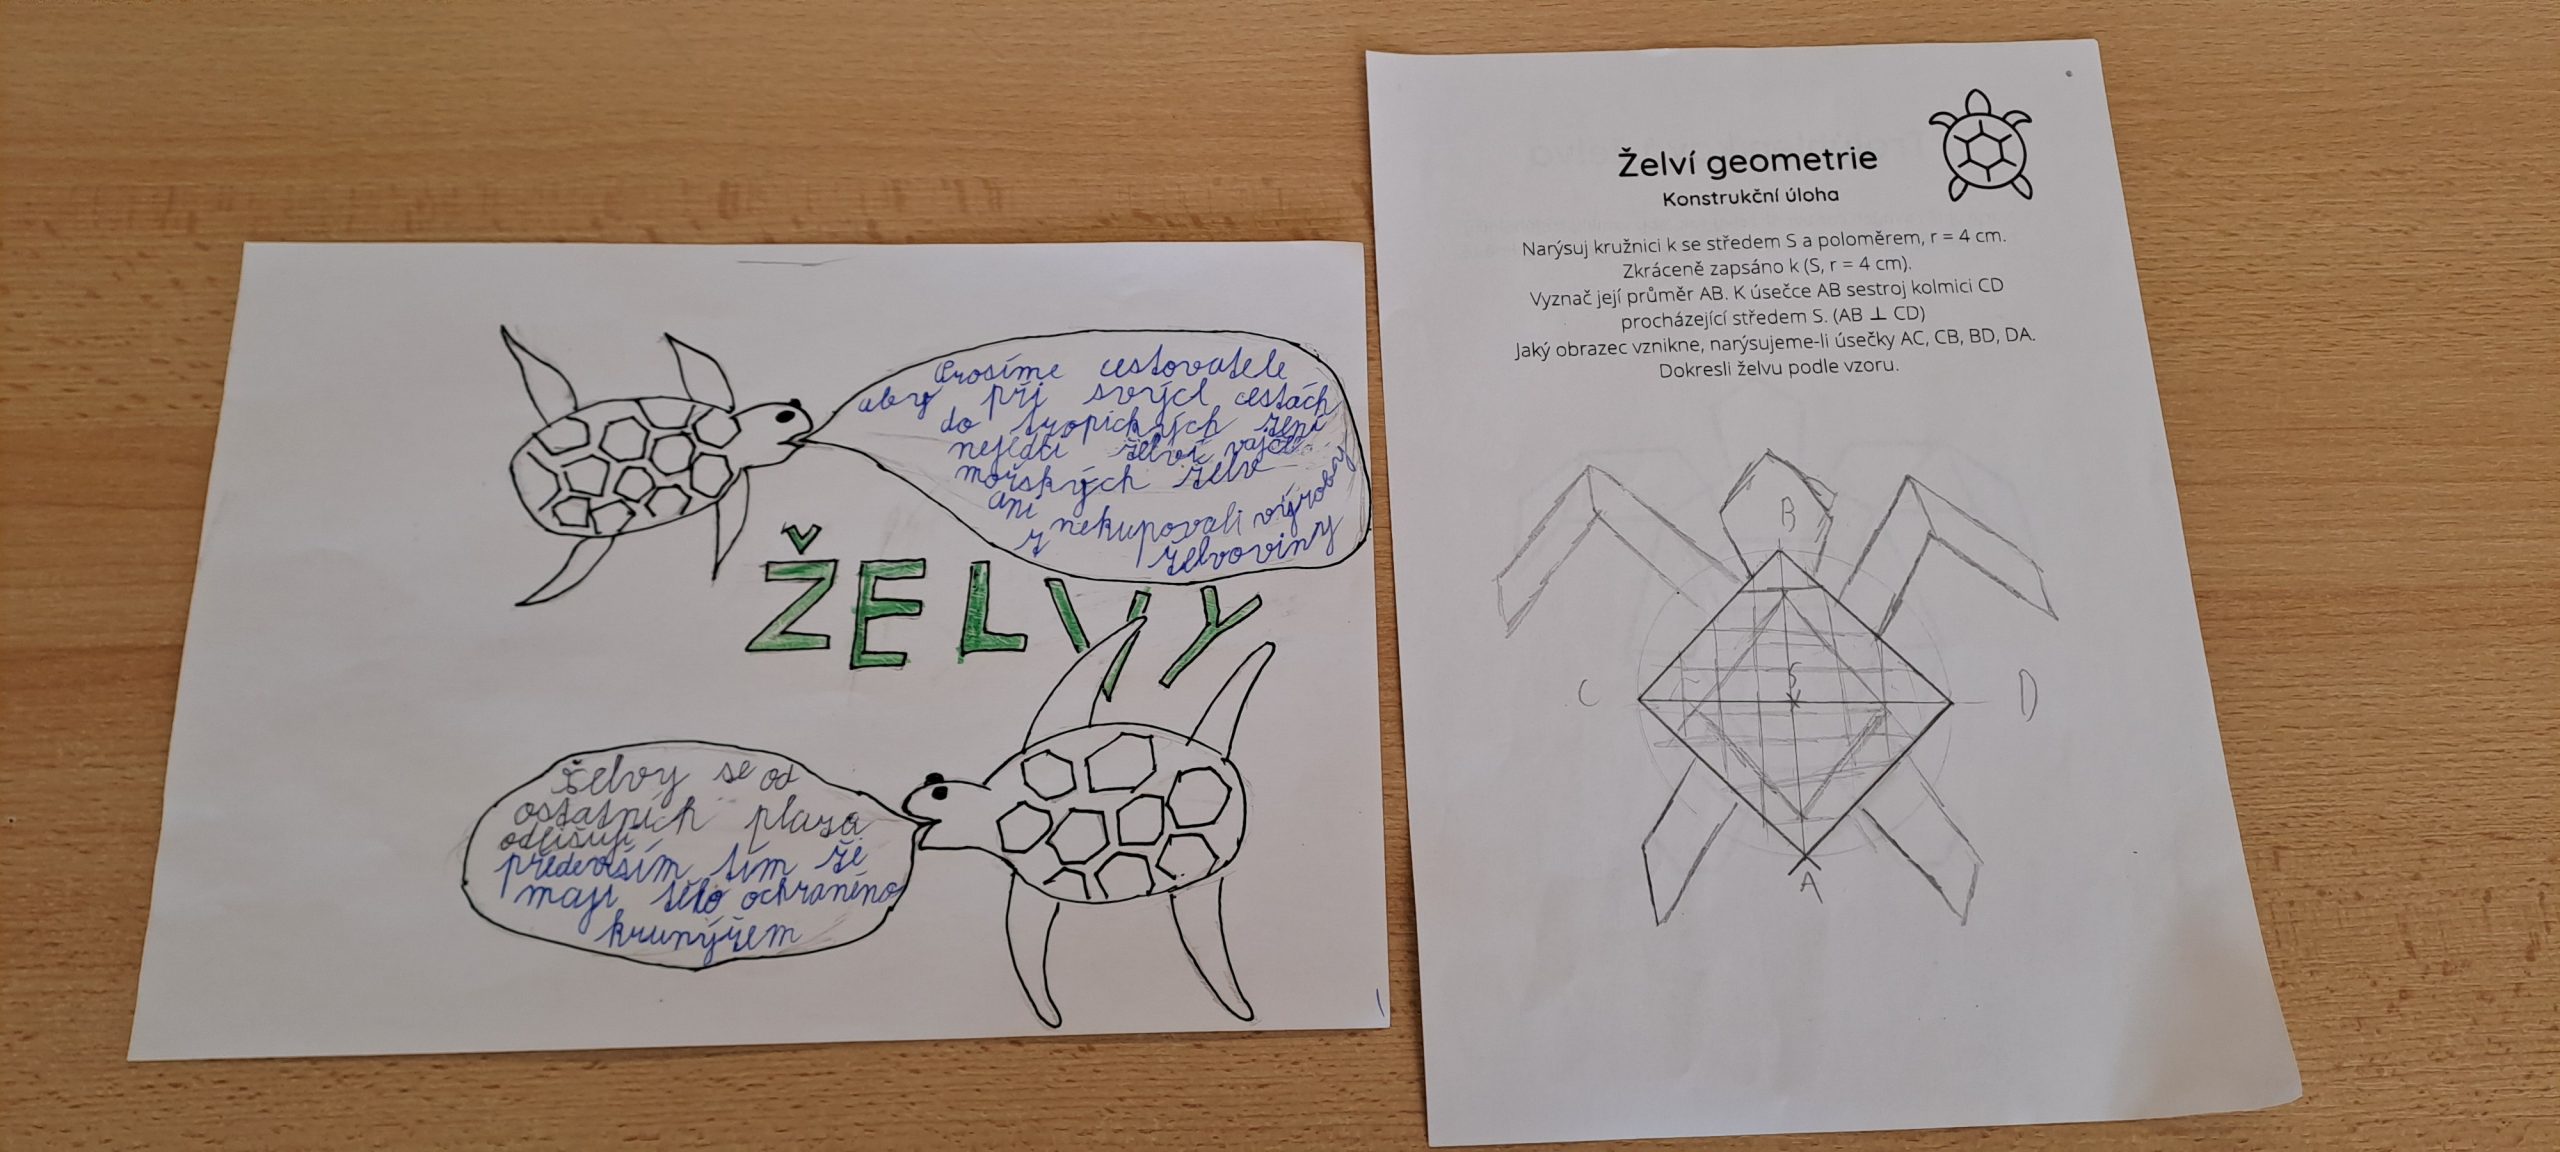 Prosíme cestovatele
aby při svých cestách
do tropických zemí
nejedli želví vajce
mořských želv
ani nekupovali výrobky
z želvoviny
ŽELVY
želvy se od
ostatních plaza
odlišují
především tím že
mají tělo ochraněno
krunýřem
Želví geometrie
Konstrukční úloha
Narýsuj kružnici k se středem S a poloměrem, r = 4 cm.
Zkráceně zapsáno k (S, r = 4 cm).
Vyznač její průměr AB. K úsečce AB sestroj kolmici CD
procházející středem S. (AB ⊥ CD)
Jaký obrazec vznikne, narýsujeme-li úsečky AC, CB, BD, DA.
Dokresli želvu podle vzoru.
B
S
C
D
A